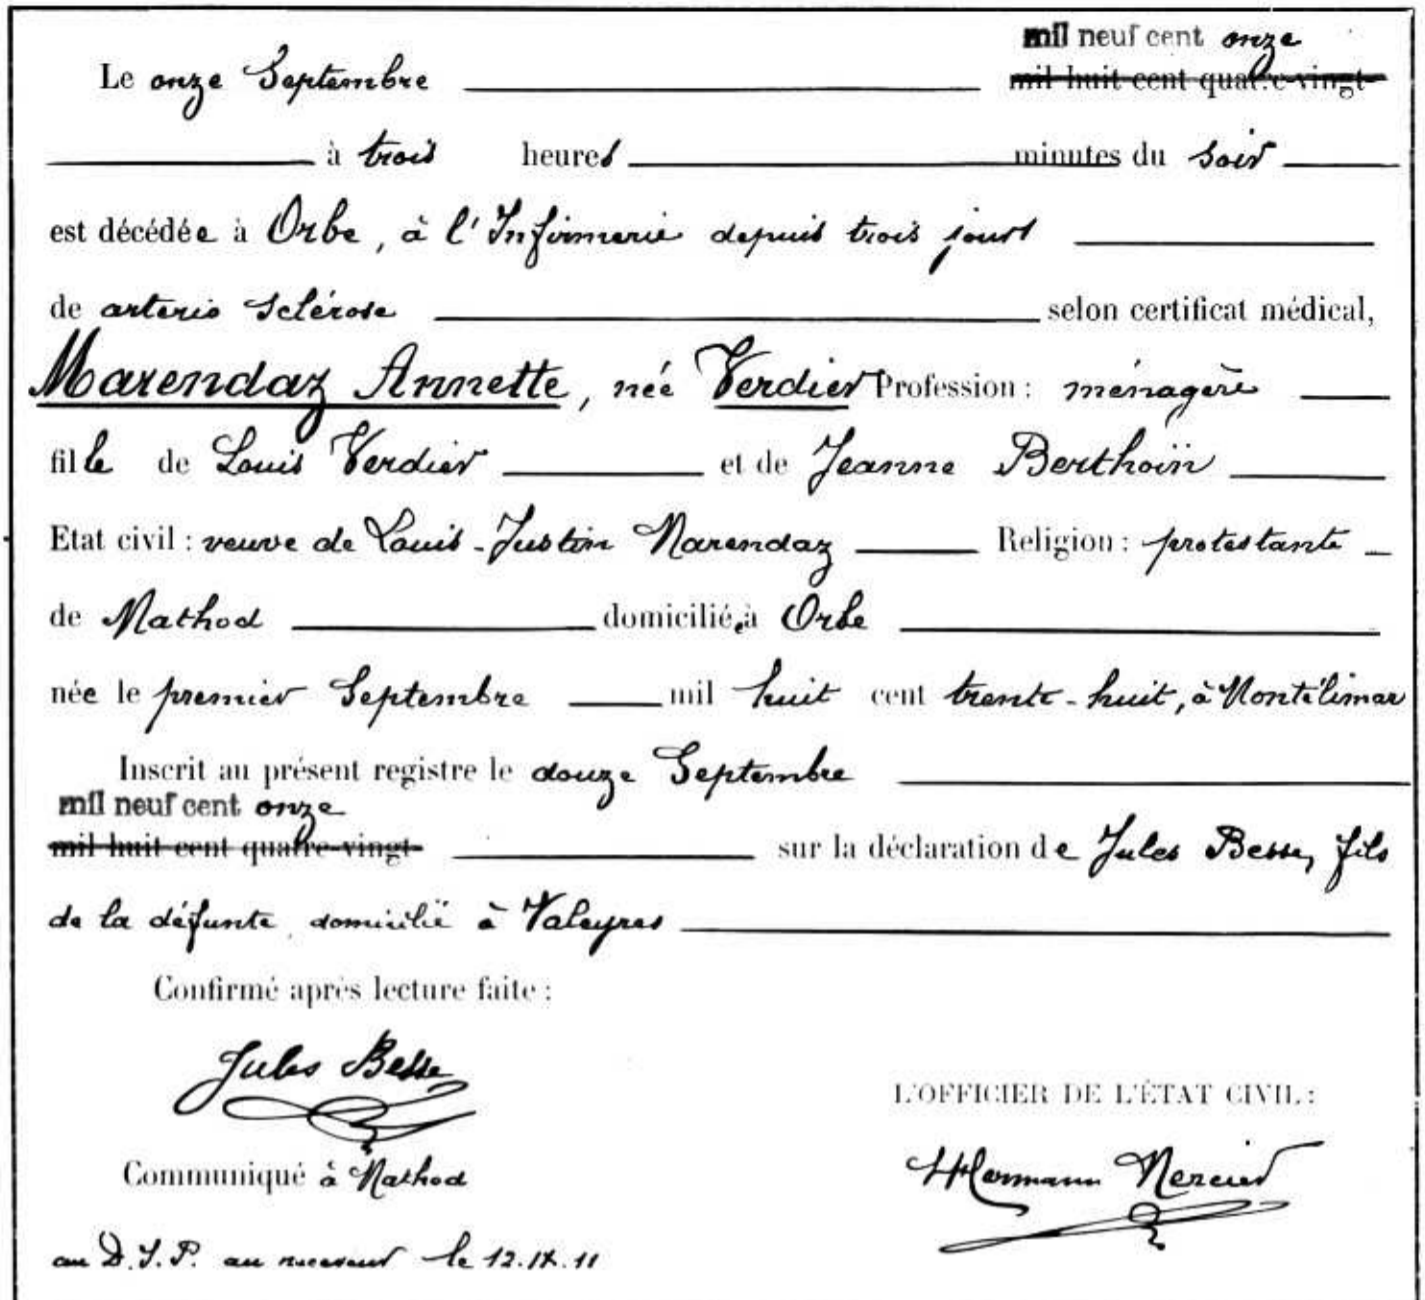 mil neuf cent onze
Le onze Septembre mil huit cent quatre-vingt-
à trois heures minutes du soir
est décédée à Orbe, à l'Infirmerie depuis trois jours
de arterio sclérose selon certificat médical,
Marendaz Annette, née Verdier Profession : ménagère
fille de Louis Verdier et de Jeanne Berthoïn
Etat civil : veuve de Louis-Justin Marendaz Religion : protestante
de Mathod domiciliée à Orbe
née le premier Septembre mil huit cent trente-huit, à Montélimar
Inscrit au présent registre le douze Septembre
mil neuf cent onze
mil huit cent quatre-vingt- sur la déclaration de Jules Besse, fils
de la défunte, domicilié à Valeyres
Confirmé après lecture faite :
Jules Besse
L'OFFICIER DE L'ÉTAT CIVIL :
Communiqué à Mathod
Hermann Mercier
au D. J. P. au receveur le 12.IX.11